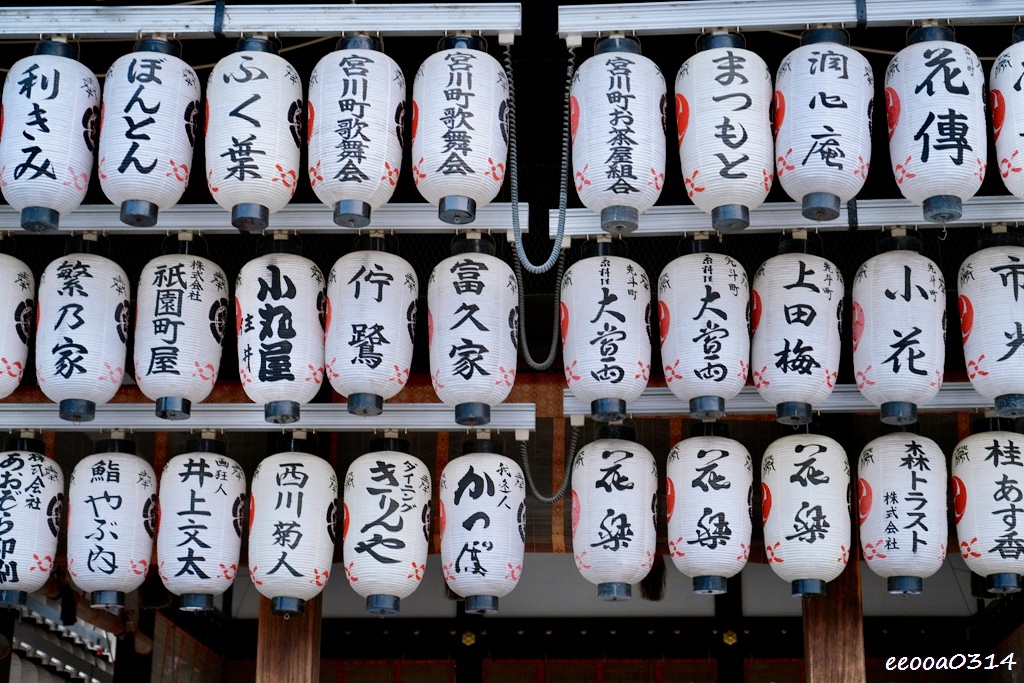 利きみ
ぼんとん
ふく葉
宮川町歌舞会
宮川町歌舞会
宮川町お茶屋組合
まつもと
潤心庵
花傳
繁乃家
株式会社
祇園町屋
小丸屋
住井
佇鷺
富久家
先斗町
大當両
先斗町
大當両
先斗町
上田梅
先斗町
小花
株式会社
あおぞら印刷
鮨やぶ内
画狂人
井上文太
西川菊人
ダイニング
きりんや
かつぱ
花梁
花梁
花梁
森トラスト
株式会社
桂あす香
eeooa0314